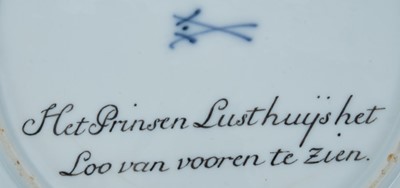 Het Prinsen Lusthuijs het
Loo van vooren te Zien.